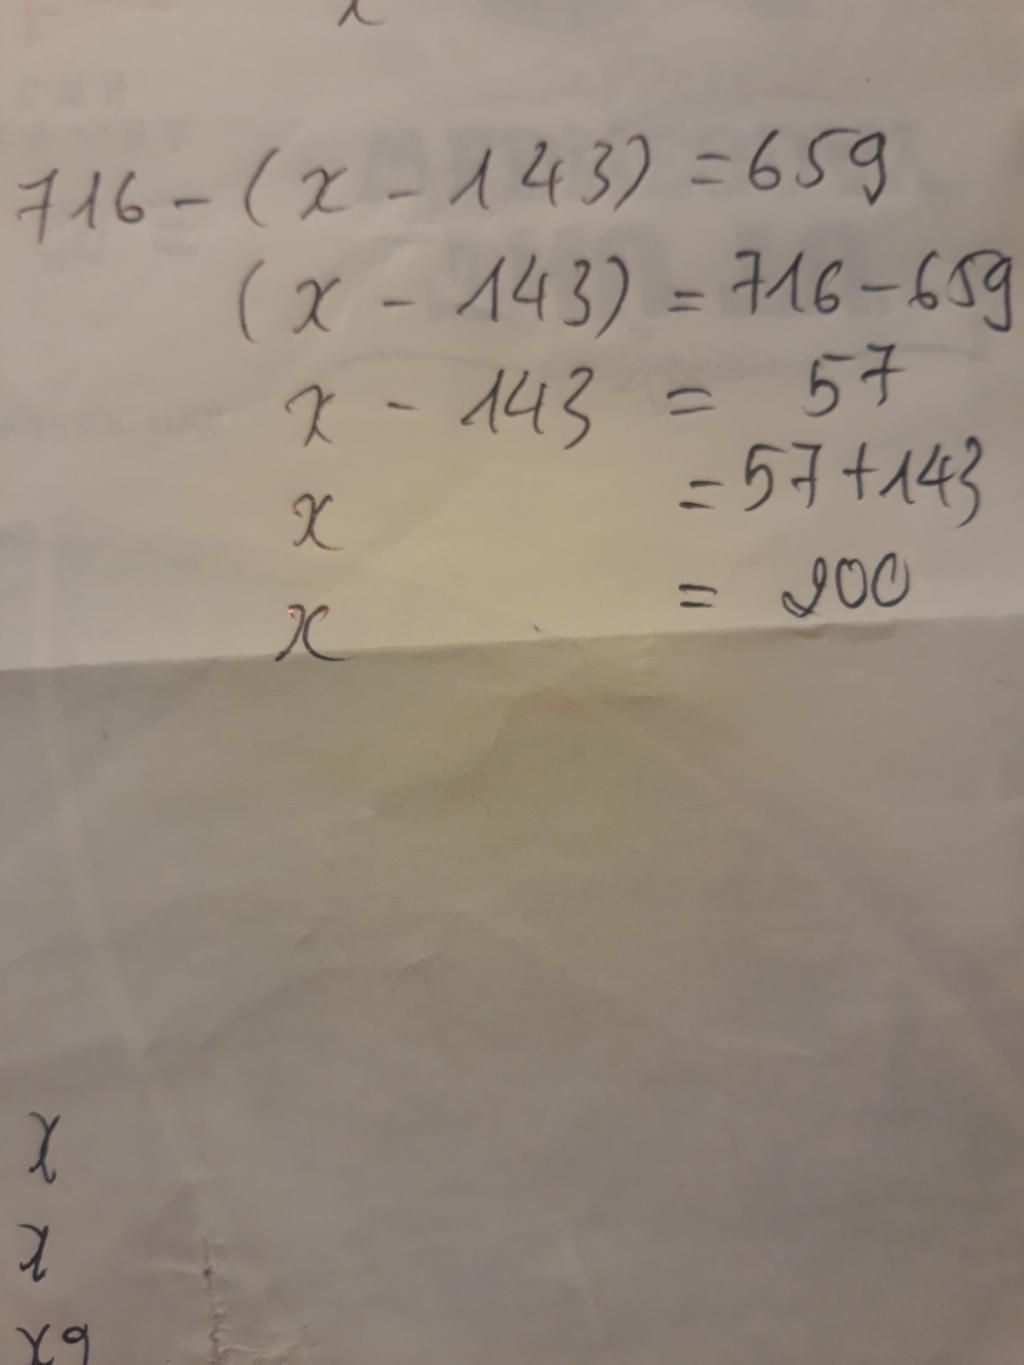 x
716 - (x - 143) = 659
(x - 143) = 716 - 659
x - 143 = 57
x = 57 + 143
x = 200
x
x
x9